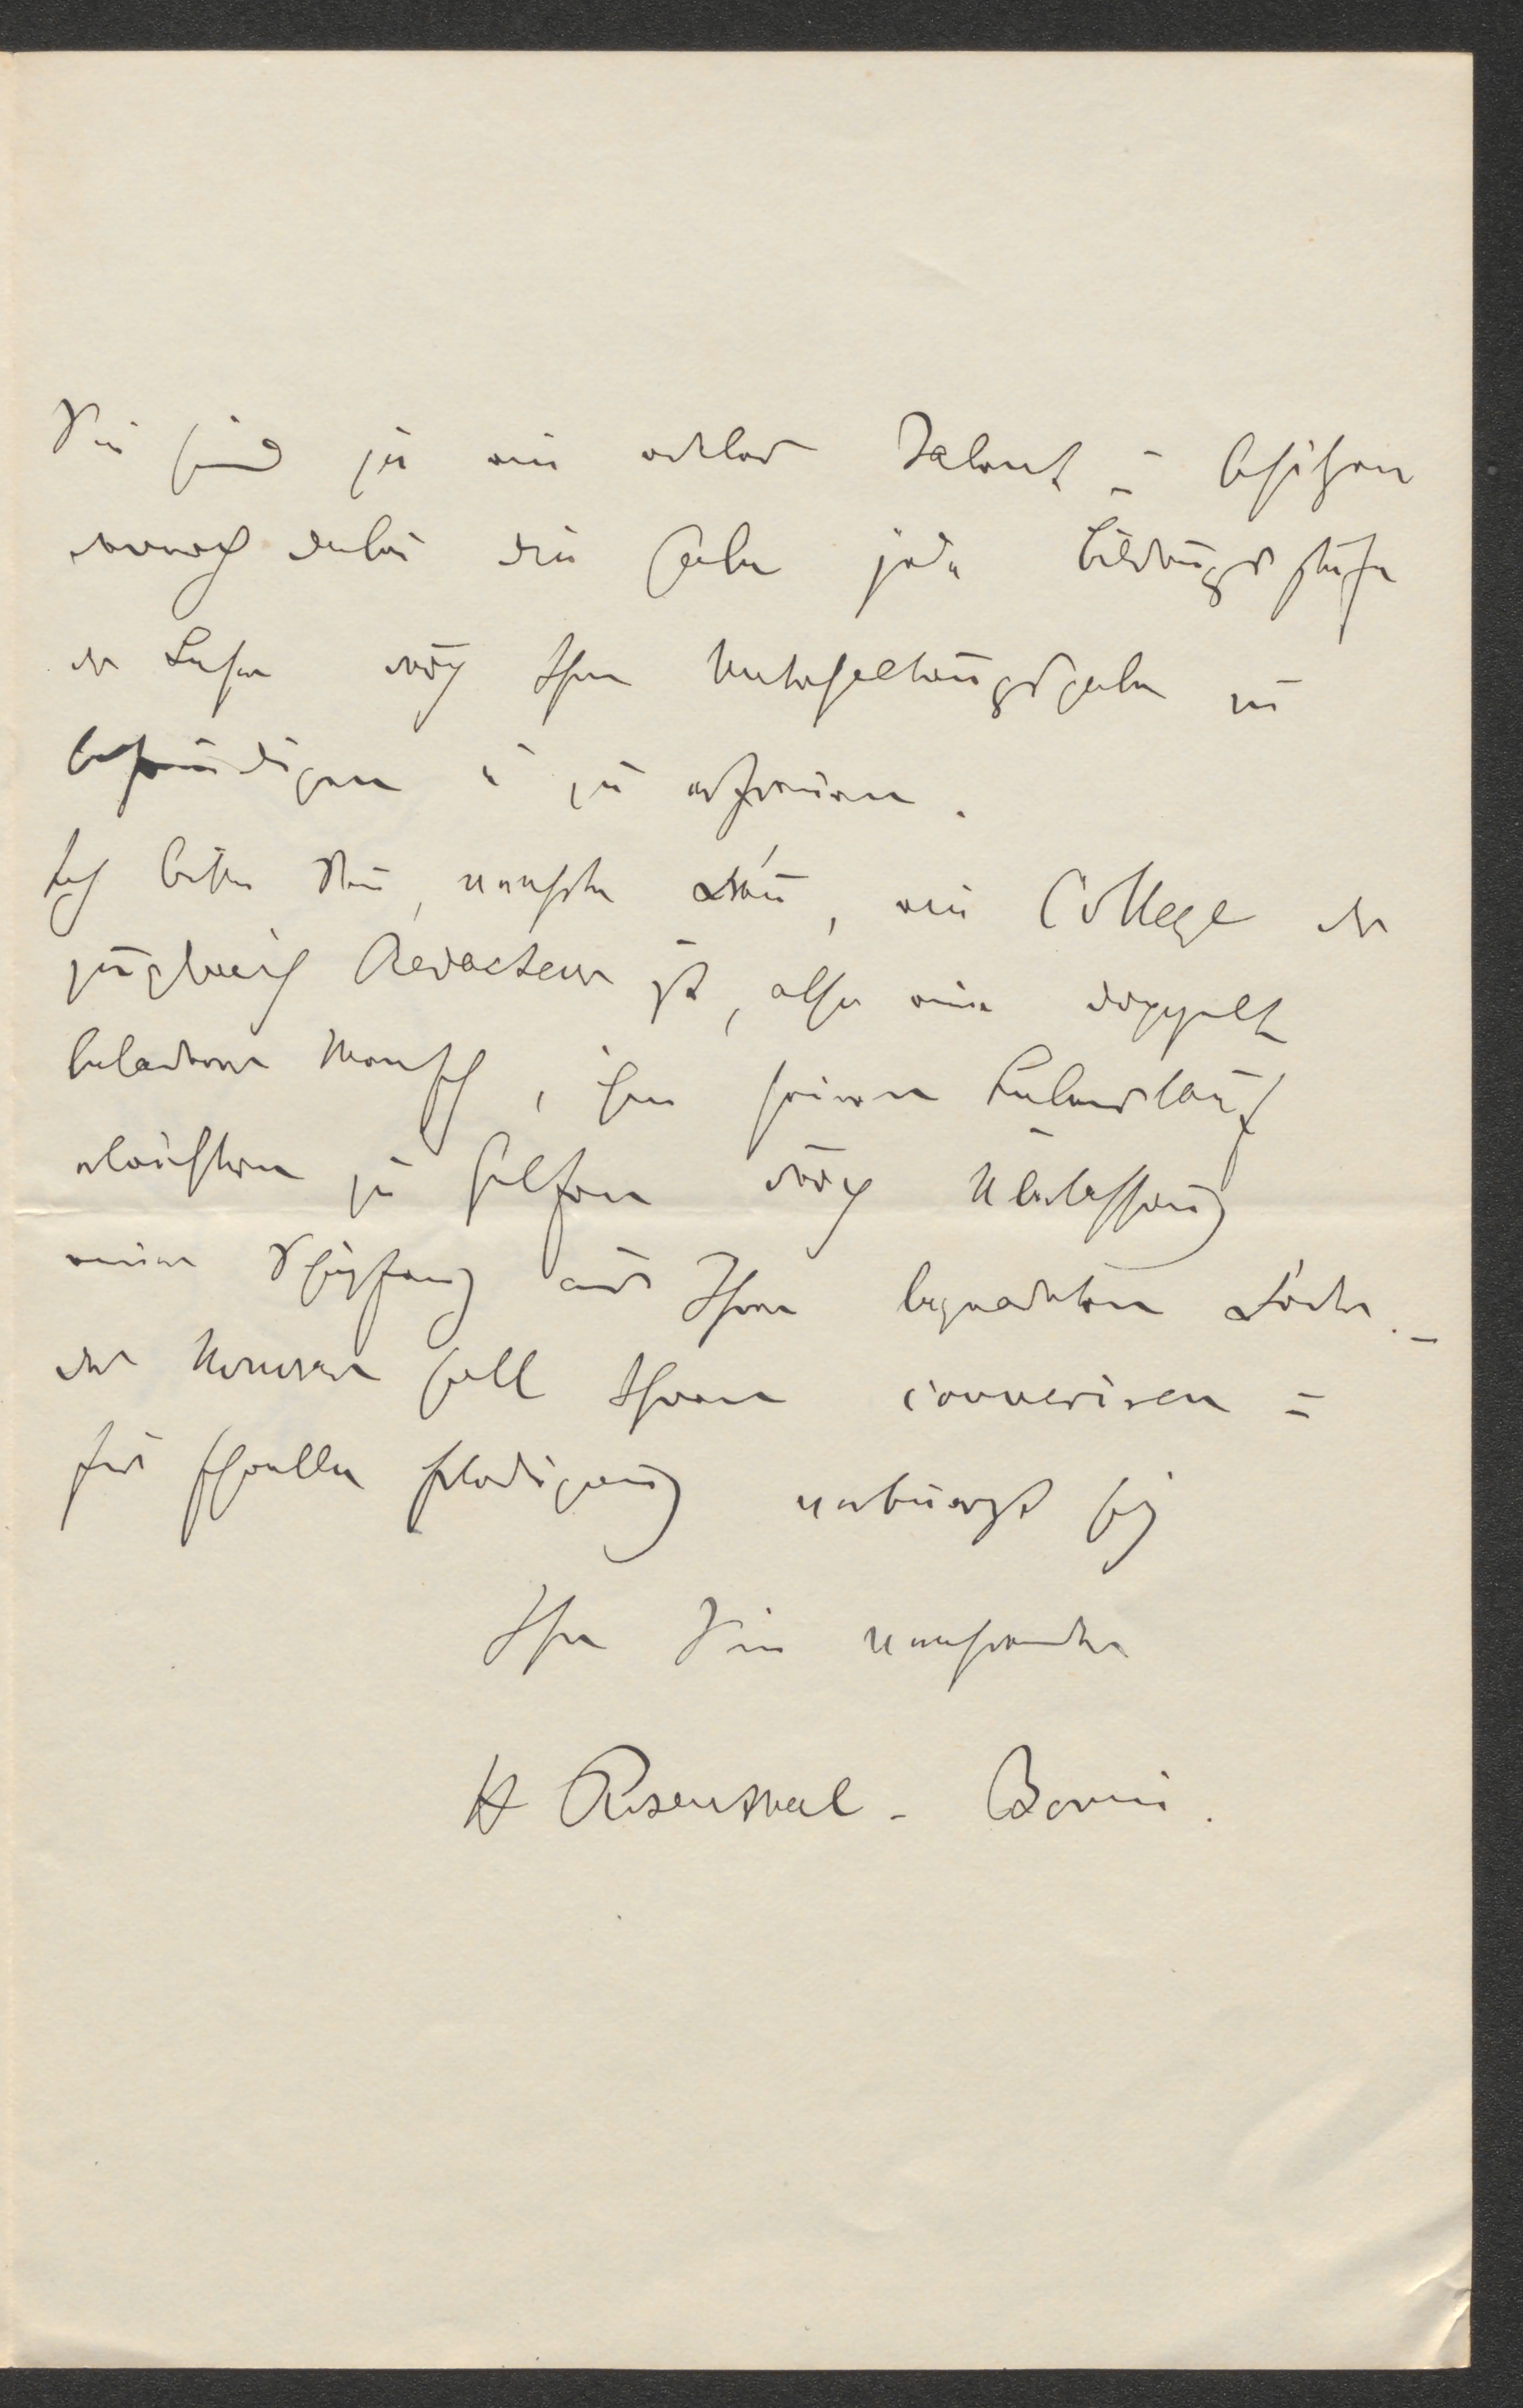 Sie sind ja ein edles Talent – besitzen
dennoch dabei die Gabe jede Bildungsstufe
der Leser durch Ihre Unterhaltungsgabe zu
befriedigen u zu erfreuen.
Ich bitte Sie, verehrte Frau, ein College der
zugleich Redacteur ist, also ein doppelt
beladener Mensch, ihm seinen Lebenslauf
erleichtern zu helfen durch Überlassung
einer Schöpfung aus Ihrer begnadeten Feder. –
der Honorar soll Ihnen conveniren –
für schnelle Erledigung verbürgt sich
Ihr Sie verehrender
H Rosenthal - Bonin.